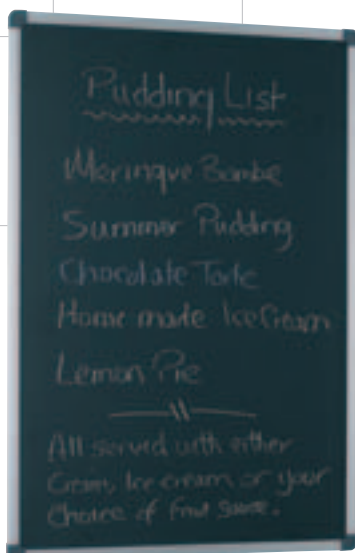 Pudding List
Meringue Bombe
Summer Pudding
Chocolate Torte
Home made Ice Cream
Lemon Pie
All served with either
Cream, Ice cream, or your
Choice of fruit sauce.